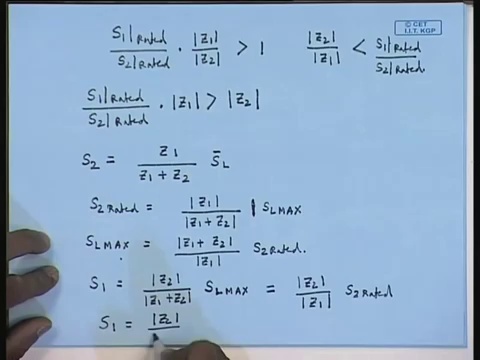 © CET
I.I.T. KGP
S₁|Rated / S₂|Rated · |Z₁| / |Z₂| > 1    |Z₂| / |Z₁| < S₁|Rated / S₂|Rated.
S₁|Rated / S₂|Rated · |Z₁| > |Z₂|
S₂ = Z₁ / Z₁ + Z₂ S̄L
S₂ Rated = |Z₁| / |Z₁ + Z₂| | SLMAX
SLMAX = |Z₁ + Z₂| / |Z₁| S₂ Rated.
S₁ = |Z₂| / |Z₁ + Z₂| SLMAX = |Z₂| / |Z₁| S₂ Rated
S₁ = |Z₂| /